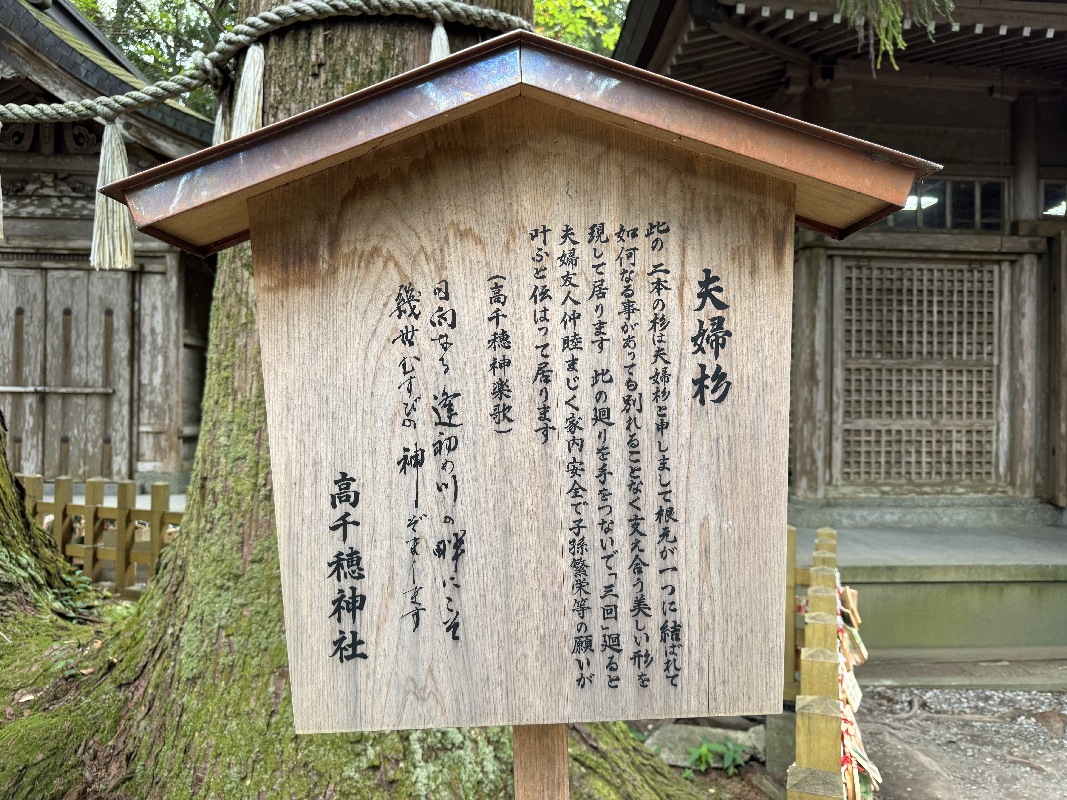 夫婦杉
此の二本の杉は夫婦杉と申しまして根元が一つに結ばれて
如何なる事があっても別れることなく支え合う美しい形を
現して居ります 此の廻りを手をつないで「三回」廻ると
夫婦友人仲睦まじく家内安全で子孫繁栄等の願いが
叶ふと伝はって居ります
(高千穂神楽歌)
日向なる 逢初の川の畔にこそ
幾世むすびの神しぞまします
高千穂神社